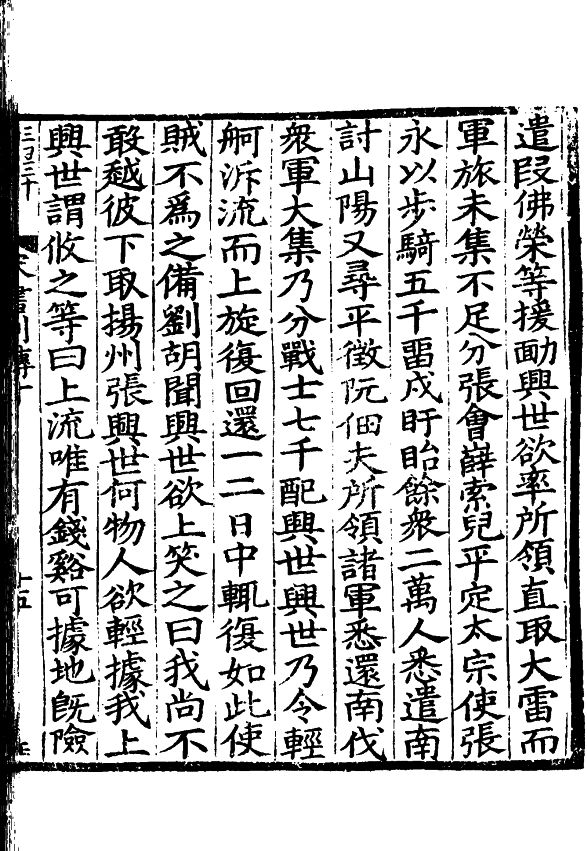 遣段佛榮等援勔興世欲率所領直取大雷而
軍旅未集不足分張會薛索兒平定太宗使張
永以步騎五千畱戍盱眙餘衆二萬人悉遣南
討山陽又尋平徵阮佃夫所領諸軍悉還南伐
衆軍大集乃分戰士七千配興世興世乃令輕
舸泝流而上旋復回還一二日中輒復如此使
賊不爲之備劉胡聞興世欲上笑之曰我尚不
敢越彼下取揚州張興世何物人欲輕據我上
興世謂攸之等曰上流唯有錢谿可據地旣險